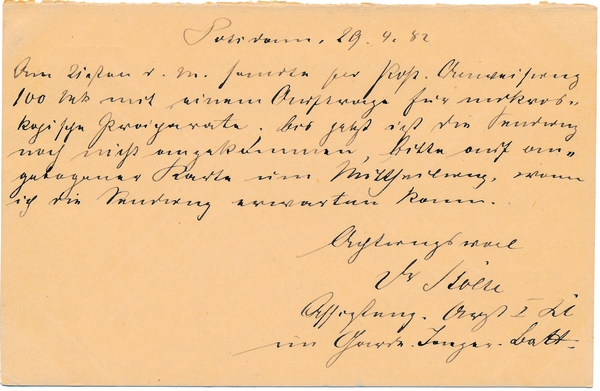 Potsdam, 29. 4. 82
Am 21sten d. M. sandte per Post-Anweisung
100 Mk mit einem Auftrage für mikros-
kopische Praeparate. Bis jetzt ist die Sendung
noch nicht angekommen, bitte auf an-
gebogener Karte um Mittheilung, wann
ich die Sendung erwarten kann.
Achtungsvoll
Dr
Assistenz-Arzt I Kl
im Garde-Jaeger-Batt.